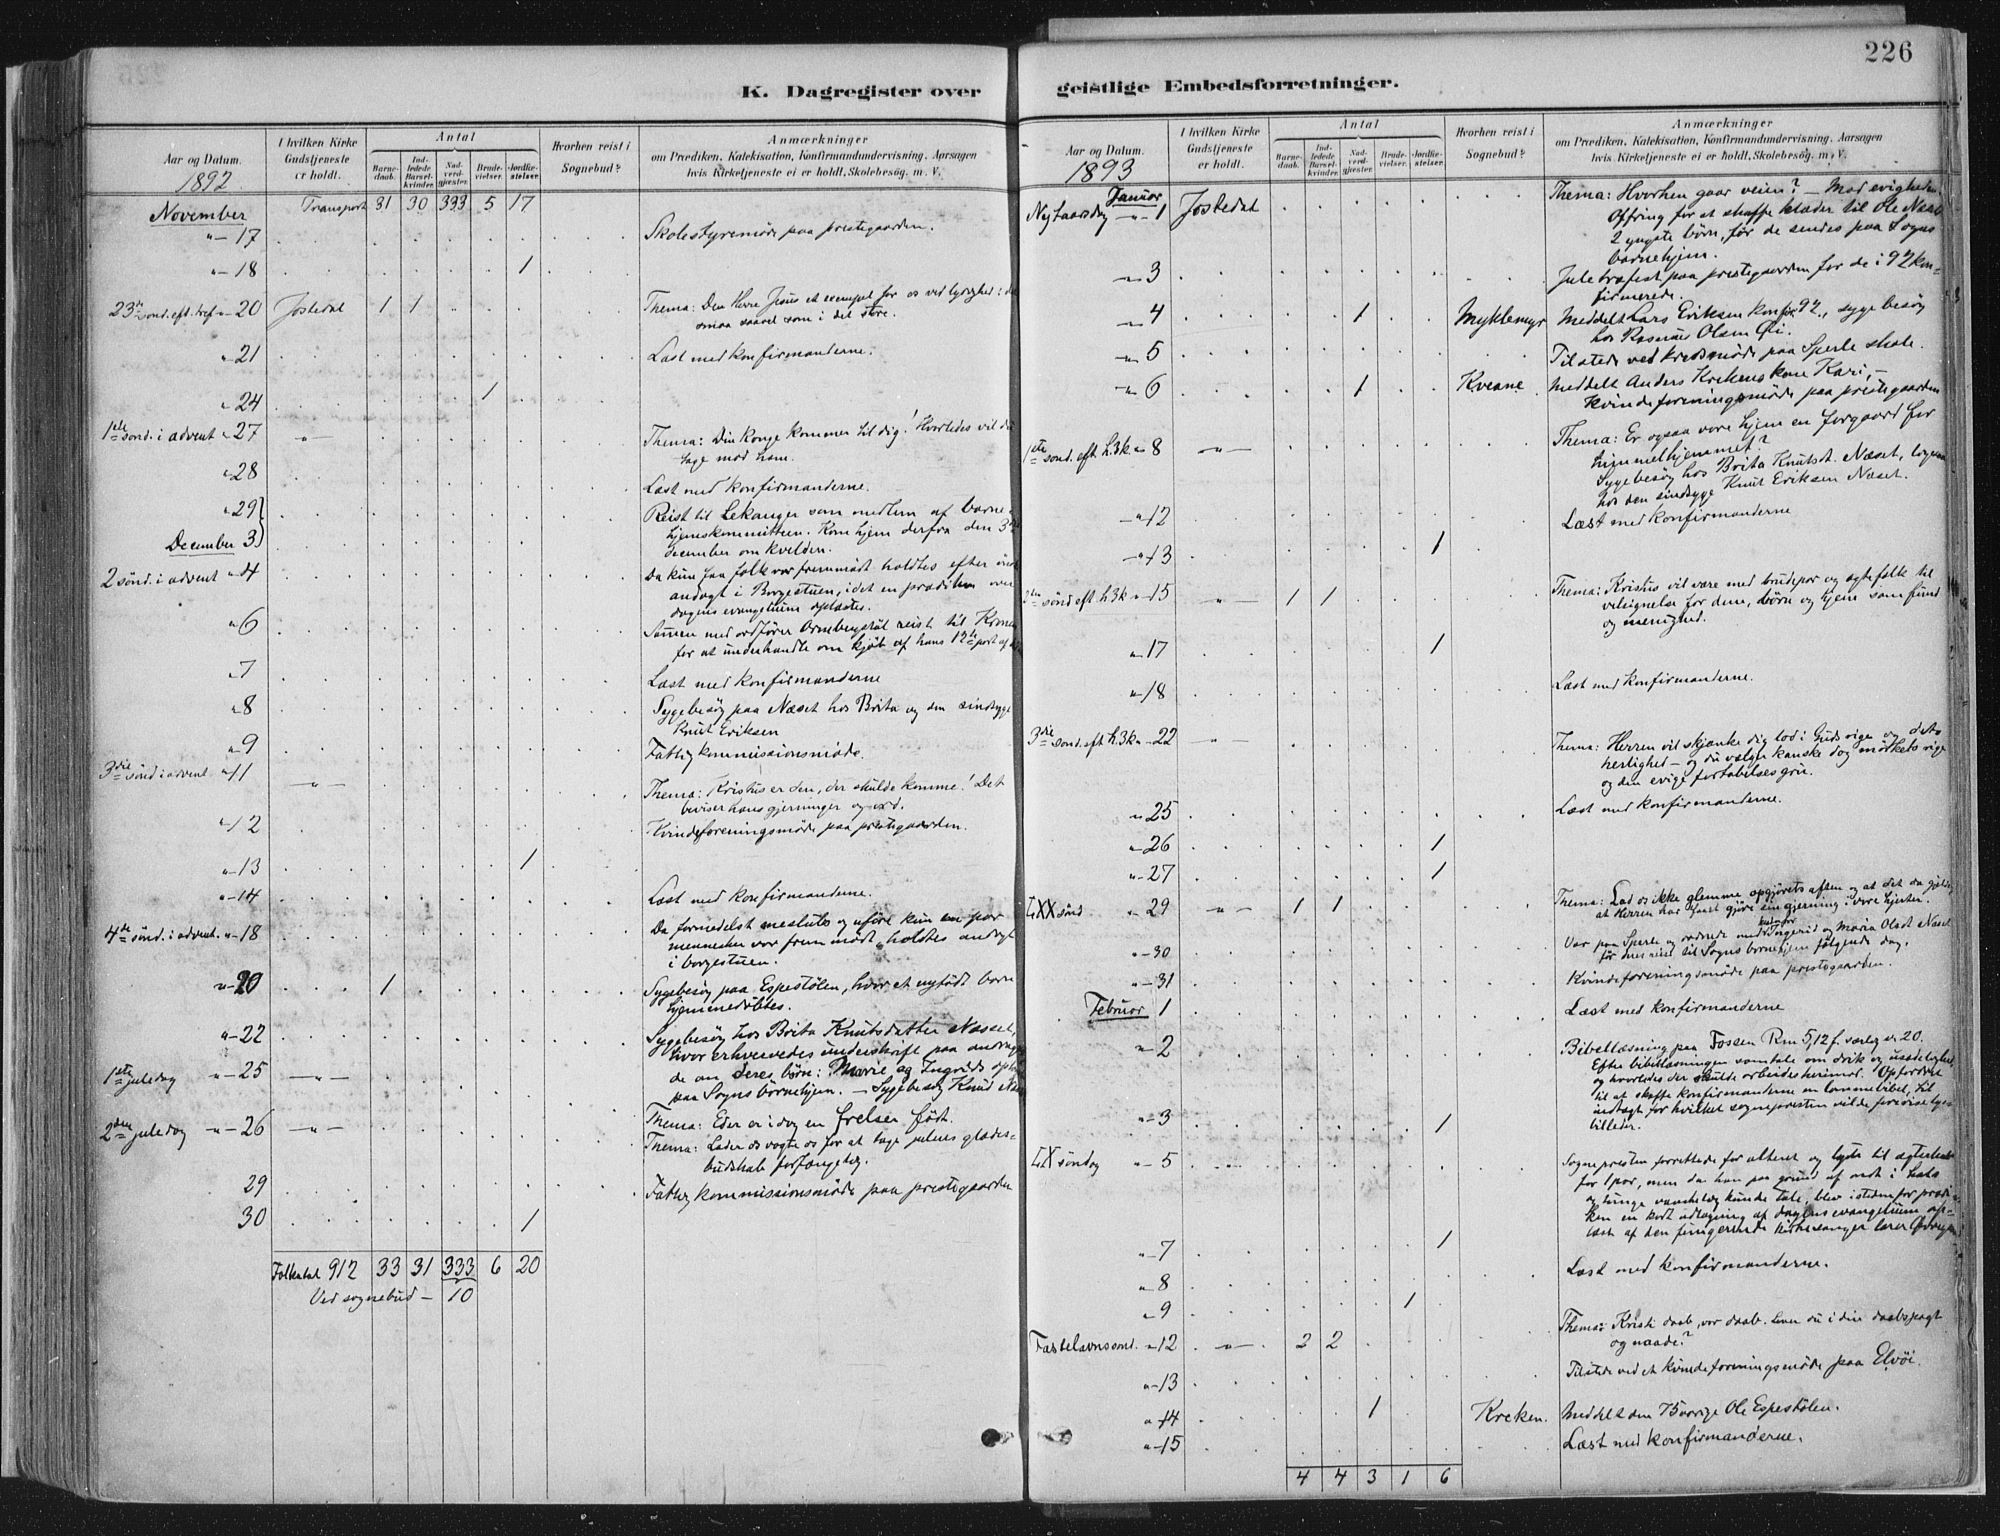 226
K. Dagregister over geistlige Embedsforretninger.
Aar og Datum.
1892
I hvilken Kirke Gudstjeneste er holdt.
Antal
Barnedaab.
Indledede Barselkvinder.
Nadverdgjester.
Brudevielser.
Jordfæstelser.
Hvorhen reist i Sognebud?
Anmærkninger
om Prædiken, Katekisation, Konfirmandundervisning, Aarsagen
hvis Kirketjeneste ei er holdt, Skolebesøg, m. V.
November Transport 31 30 333 5 17
"-17 Skolestyremøde paa prestegaarden.
"-18 1
23de sønd. eft. tref "-20 Jostedal 1 1 Thema: Den Herre Jesus et exempel for os ved lydighed i det
smaa saavel som i det store.
"-21 Læst med konfirmanderne.
"-24 1
1ste sønd. i advent "-27 -"- Thema: Din konge kommer til dig! Hvorledes vil du
tage mod ham.
"-28 Læst med konfirmanderne.
"-29 Reist til Lekanger som medlem af barne-
hjemskommitteen. Kom hjem derfra den 3die
December 3 december om kvelden.
2 sønd. i advent "-4 Da kun faa folk var fremmødt holdtes efter
andagt i Borgestuen, idet en prædiken over
dagens evangelium oplæstes.
"-6 Sammen med ordfører Ormbergstøl reist til
for at underhandle om kjøb af hans 12te part af
"-7 Læst med konfirmanderne
"-8 Sygebesøg paa Næset hos Brita og den sindsyge
Knut Eriksen
"-9 Fattigkommissionsmøde.
3die sønd i advent "-11 -"- Thema: Kristus er den, der skulde komme! Det
beviser hans gjerninger og ord.
"-12 Kvindeforeningsmøde paa prestegaarden.
"-13 1
"-14 Læst med konfirmanderne.
4de sønd. i advent. "-18 Da formedelst nesluto og uføre kun en par
mennesker var frem mødt, holdtes andagt
i borgestuen.
"-20 1 Sygebesøg paa Espestølen, hvor et nyfødt barn
hjemmedøbtes.
"-22 Sygebesøg hos Brita Knutsdatter Næset,
hvor erhvervedes underskrift paa
1ste juledag "-25 -"- de om deres børn: Marie og Ingrids
paa Sogns børnehjem. — Sygebesøg Knud
2den juledag "-26 -"- Thema: Eder er i dag en frelser født.
Thema: Lader os vogte os for at tage julens glædes-
budskab forfængelig.
29 Fattigkommissionsmøde paa prestegaarden
30 1
Folketal 912 33 31 333 6 20
Ved sognebud — 10
Aar og Datum.
1893
I hvilken Kirke Gudstjeneste er holdt.
Antal
Barnedaab.
Indledede Barselkvinder.
Nadverdgjester.
Brudevielser.
Jordfæstelser.
Hvorhen reist i Sognebud?
Anmærkninger
om Prædiken, Katekisation, Konfirmandundervisning, Aarsagen
hvis Kirketjeneste ei er holdt, Skolebesøg, m. V.
Januar
Nytaarsdag "-1 Jostedal Thema: Hvorhen gaar veien? — Mod evigheden.
Offring for at skaffe klæder til Ole Næsets
2 yngste børn, før de sendes paa Sogns
barnehjem.
"-3 Juletræfest paa prestegaarden for de i 92 kon-
firmerede.
"-4 1 Myklemyr Meddelt Lars Eriksen konfr. 92, sygebesøg
hos Rasmus Olsen Øi.
"-5 Tilstede ved kredsmøde paa Sperle skole.
"-6 1 Kveane Meddelt Anders Krekens kone Kari, —
Kvindeforeningsmøde paa prestegaarden
1ste sønd. eft h.3k "-8 -"- Thema: Er ogsaa vore hjem en forgaard for
himmelhjemmet?
Sygebesøg hos Brita Knutsdt. Næset, ogsaa
hos den sindsyge Knut Eriksen Næset.
"-12 Læst med konfirmanderne
"-13 1
2den sønd eft h.3k "-15 -"- 1 1 Thema: Kristus vil være med brudepar og egtefolk til
velsignelse for dem, børn og hjem samfund
og menighed.
"-17 1
"-18 Læst med konfirmanderne.
3die sønd. eft h.3k "-22 -"- Thema: Herren vil skjænke dig lod i Guds rige og dets
herlighed — og du vælger kanske dog mørkets rige
og den evige fortabelses gru.
"-25 Læst med konfirmanderne.
"-26 1
"-27 1
LXX sønd "-29 -"- 1 1 Thema: Lad os ikke glemme opgjørets aften og at det da gjælder,
at Herren har faaet gjøre sin gjerning i vore hjerter.
"-30 Var paa Sperle og ordnede med Ingerid og Maria Olsdt Næset
før der reist til Sogns børnehjem følgende dag.
"-31 Kvindeforeningsmøde paa prestegaarden.
Februar 1 Læst med konfirmanderne
"-2 Bibellæsning paa Fossen Rm 5,12 f. særlig v. 20.
Efter bibellæsningen samtale om drik og usædelighed,
og hvorledes der skulde arbeides herimod. Opfordret
til at skaffe konfirmanderne en lommebibel, til
indtægt for hvilket sognepresten vilde forevise lys-
billeder.
"-3 1
LX søndag "-5 Sognepresten forrettede for alteret og lyste til ægteskab
for 1 par, men da han paa grund af ondt i hals
og lunge vanskelig kunde tale, blev istedenfor prædi-
ken en kort udlægning af dagens evangelium op-
læst af den fungerende kirkesanger lærer
"-7 1
"-8 Læst med konfirmanderne.
"-9 1
Fastelavnssønd. "-12 -"- 2 2 Thema: Kristi daab, vor daab. Lever du i din daabspagt
og naade?
"-13 Tilstede ved et kvindeforeningsmøde paa Elvøi.
"-14 1 Kreken. Meddelt den 75 aarige Ole Espestølen.
"-15 Læst med konfirmanderne.
4 4 3 1 6